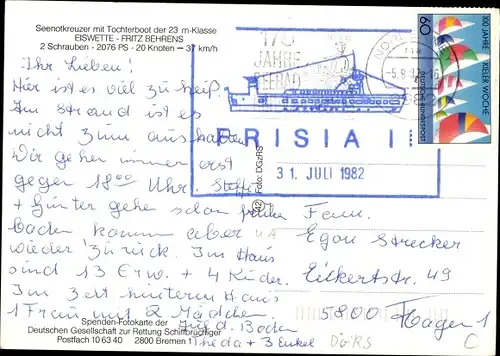 Seenotkreuzer mit Tochterboot der 23 m-Klasse
EISWETTE - FRITZ BEHRENS
2 Schrauben - 2076 PS - 20 Knoten = 37 km/h
Ihr Lieben!
Hier ist es viel zu heiß.
Am Strand ist es
nicht zum aushalten
Wir gehen immer erst
gegen 18 00 Uhr. Steffi
+ Günter gehen schon früher
baden kommen aber
wieder zurück. Im Haus
sind 13 Erw. + 4 Kinder.
Im Zelt hinterm Haus
1 Frau mit 2 Mädchen.
Auf d. Boden
Theda + 3 Enkel
Spenden-Fotokarte der
Deutschen Gesellschaft zur Rettung Schiffbrüchiger
Postfach 10 63 40 2800 Bremen 1
Foto: DGzRS
175
JAHRE
SEEBAD
FRISIA I
31. JULI 1982
-5.8.82-16
60
100 JAHRE KIELER WOCHE
DEUTSCHE BUNDESPOST
Fam.
Egon Strecker
Eckertstr. 49
5800 Hagen 1